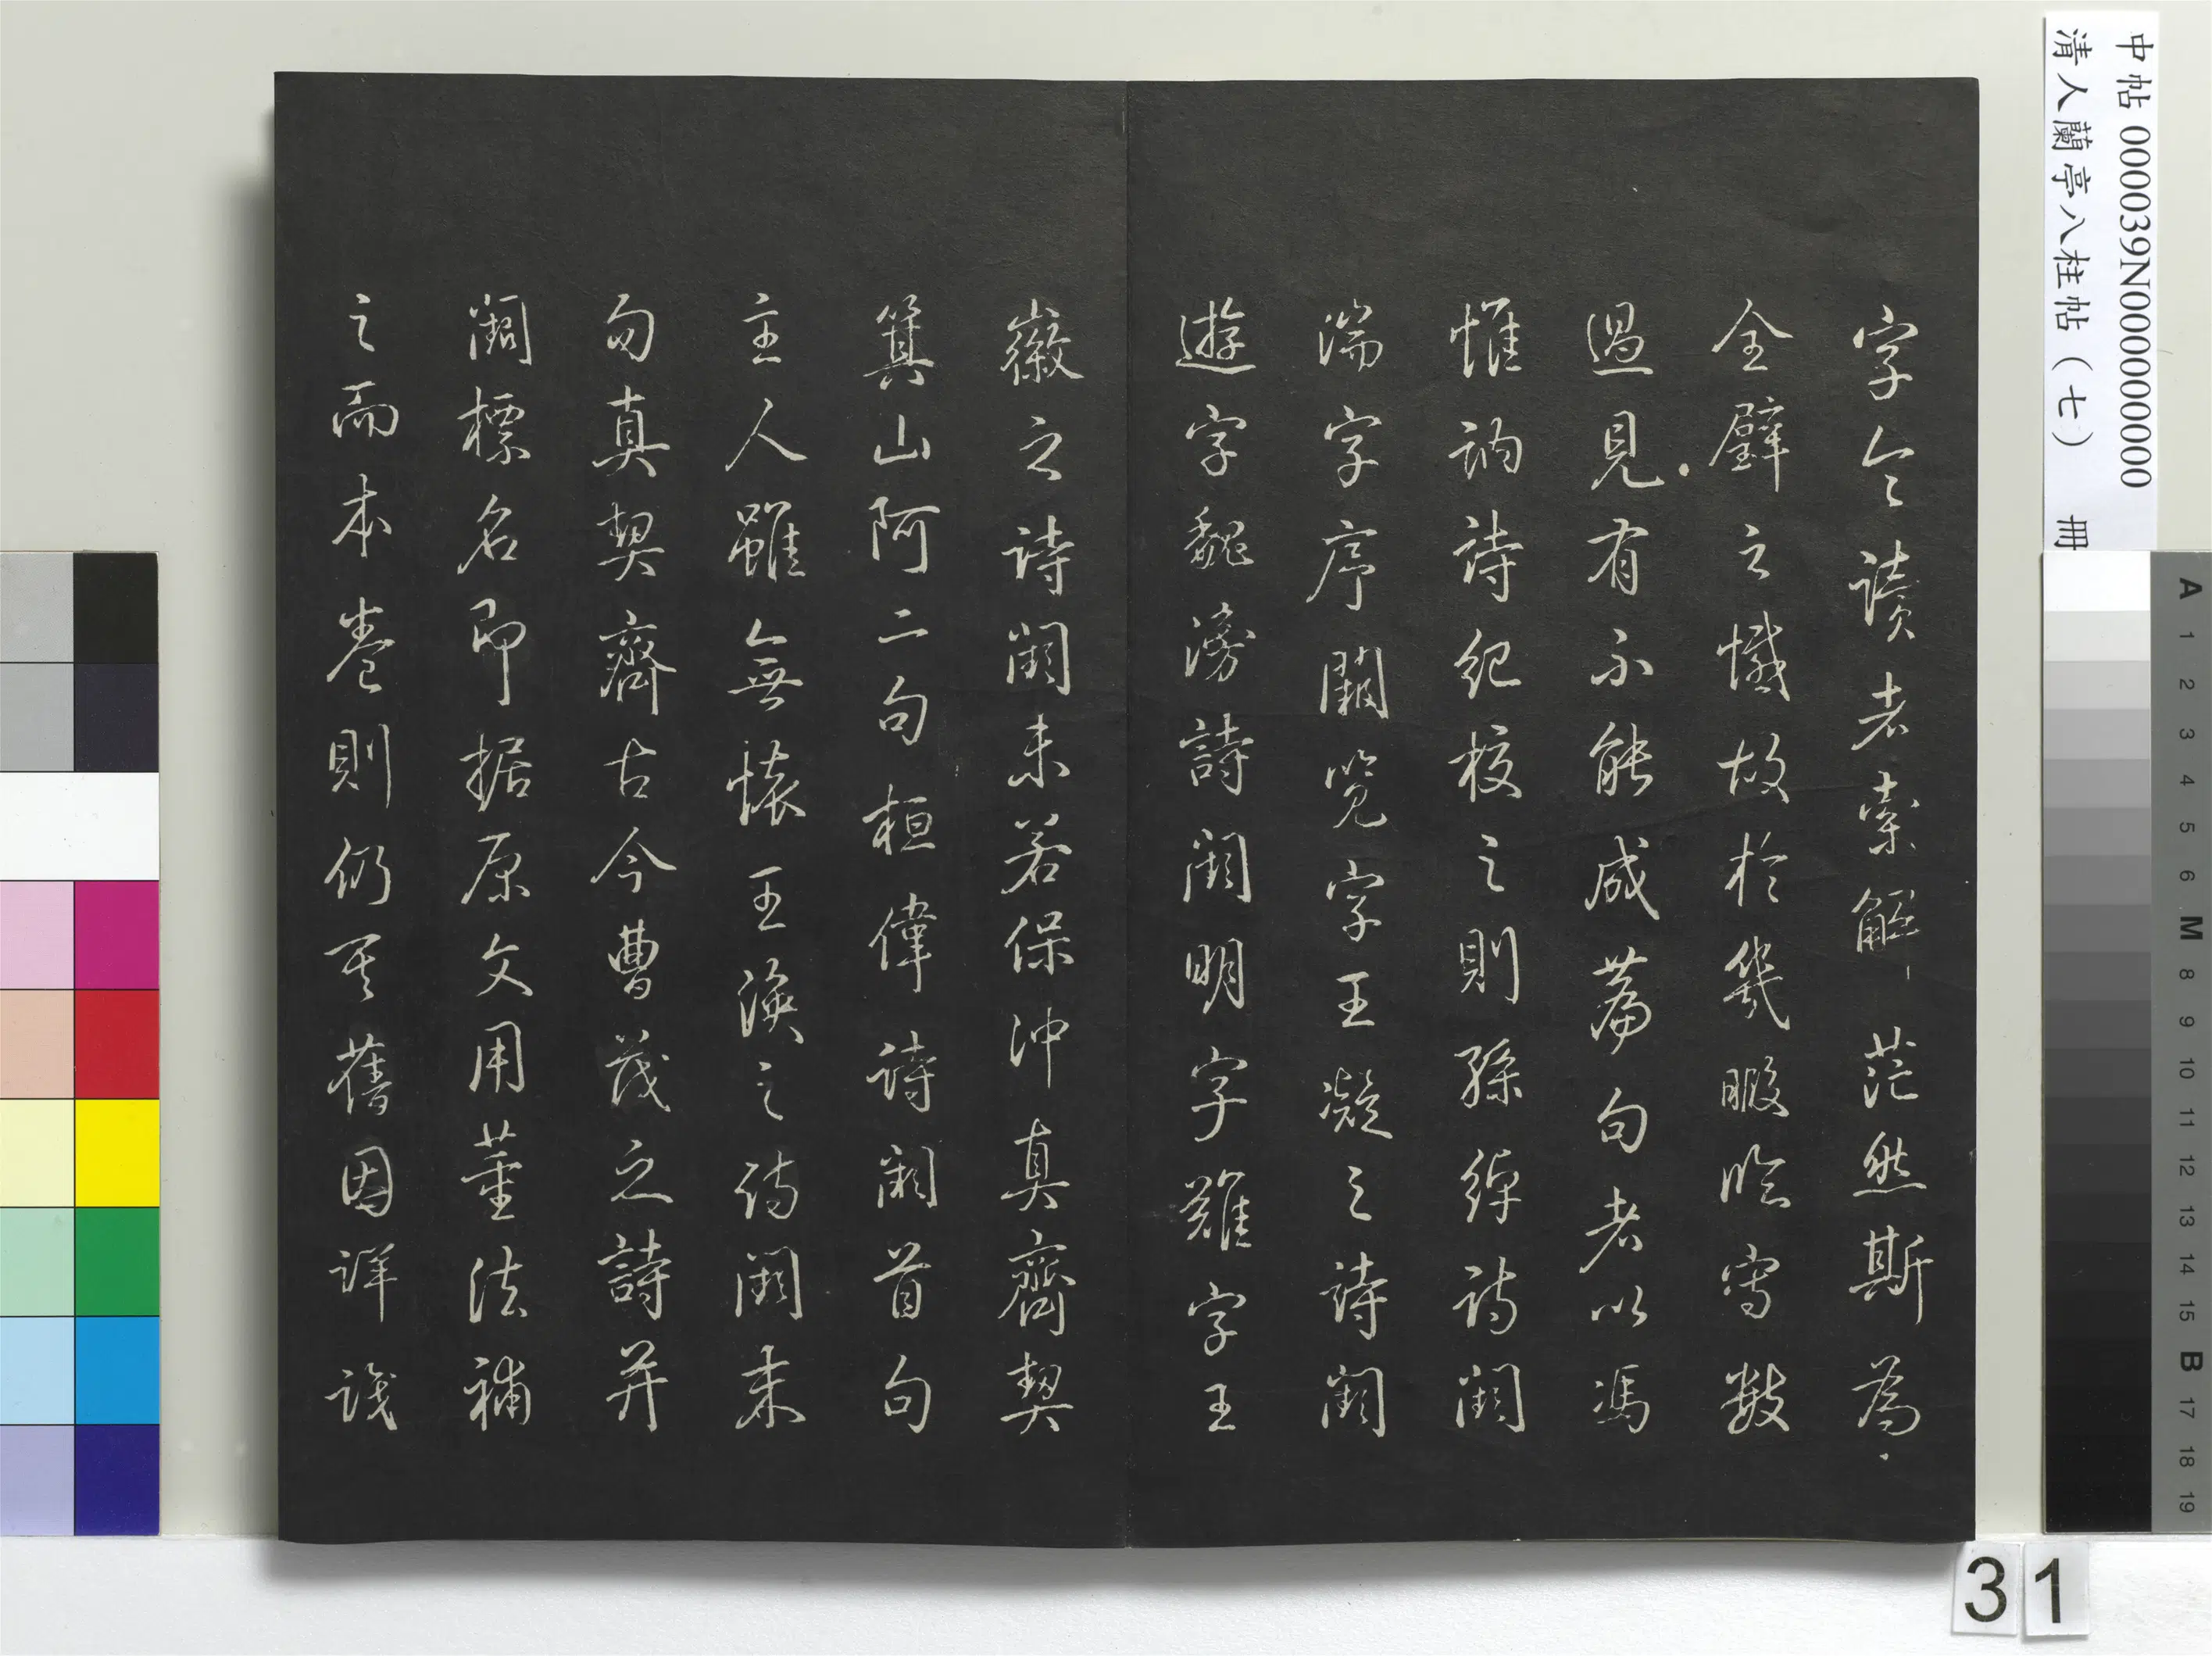 字令讀者索解茫然斯為
全璧之憾故於幾暇臨寫數
過見有不能成篇句者以馮
惟訥詩紀校之則孫綽詩闕
湍字序闕覽字王凝之詩闕
遊字魏滂詩闕明字難字王
徽之詩闕未若保沖真齊契
箕山阿二句桓偉詩闕首句
主人雖無懷王渙之詩闕未
勿真契齊古今曹茂之詩并
闕標名即据原文用董法補
之而本卷則仍其舊因詳識
中帖 000039N000000000
清人蘭亭八柱帖（七） 冊
A 1 2 3 4 5 6 M 8 9 10 11 12 13 14 15 B 17 18 19
31